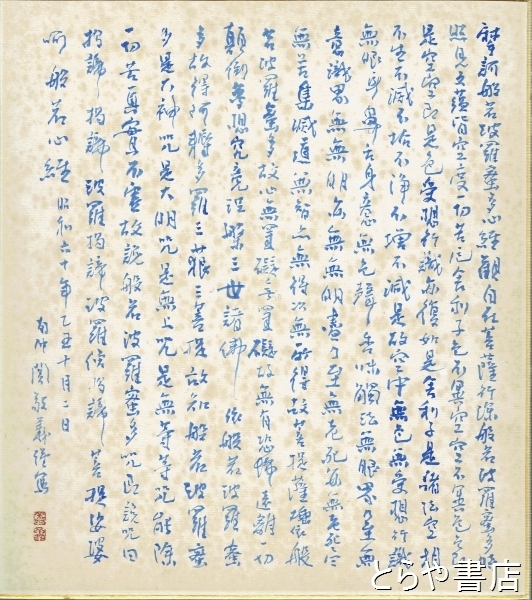 摩訶般若波羅蜜多心経観自在菩薩行深般若波羅蜜多時
照見五蘊皆空度一切苦厄舎利子色不異空空不異色色即
是空空即是色受想行識亦復如是舎利子是諸法空相
不生不滅不垢不浄不増不減是故空中無色無受想行識
無眼耳鼻舌身意無色声香味触法無眼界乃至無
意識界無無明亦無無明尽乃至無老死亦無老死尽
無苦集滅道無智亦無得以無所得故菩提薩埵依般
若波羅蜜多故心無罣礙無罣礙故無有恐怖遠離一切
顛倒夢想究竟涅槃三世諸佛依般若波羅蜜
多故得阿耨多羅三藐三菩提故知般若波羅蜜
多是大神咒是大明咒是無上咒是無等等咒能除
一切苦真實不虚故説般若波羅蜜多咒即説咒曰
揭諦揭諦波羅揭諦波羅僧揭諦菩提薩婆
訶般若心経 昭和六十年乙丑十月二日
とらや書店